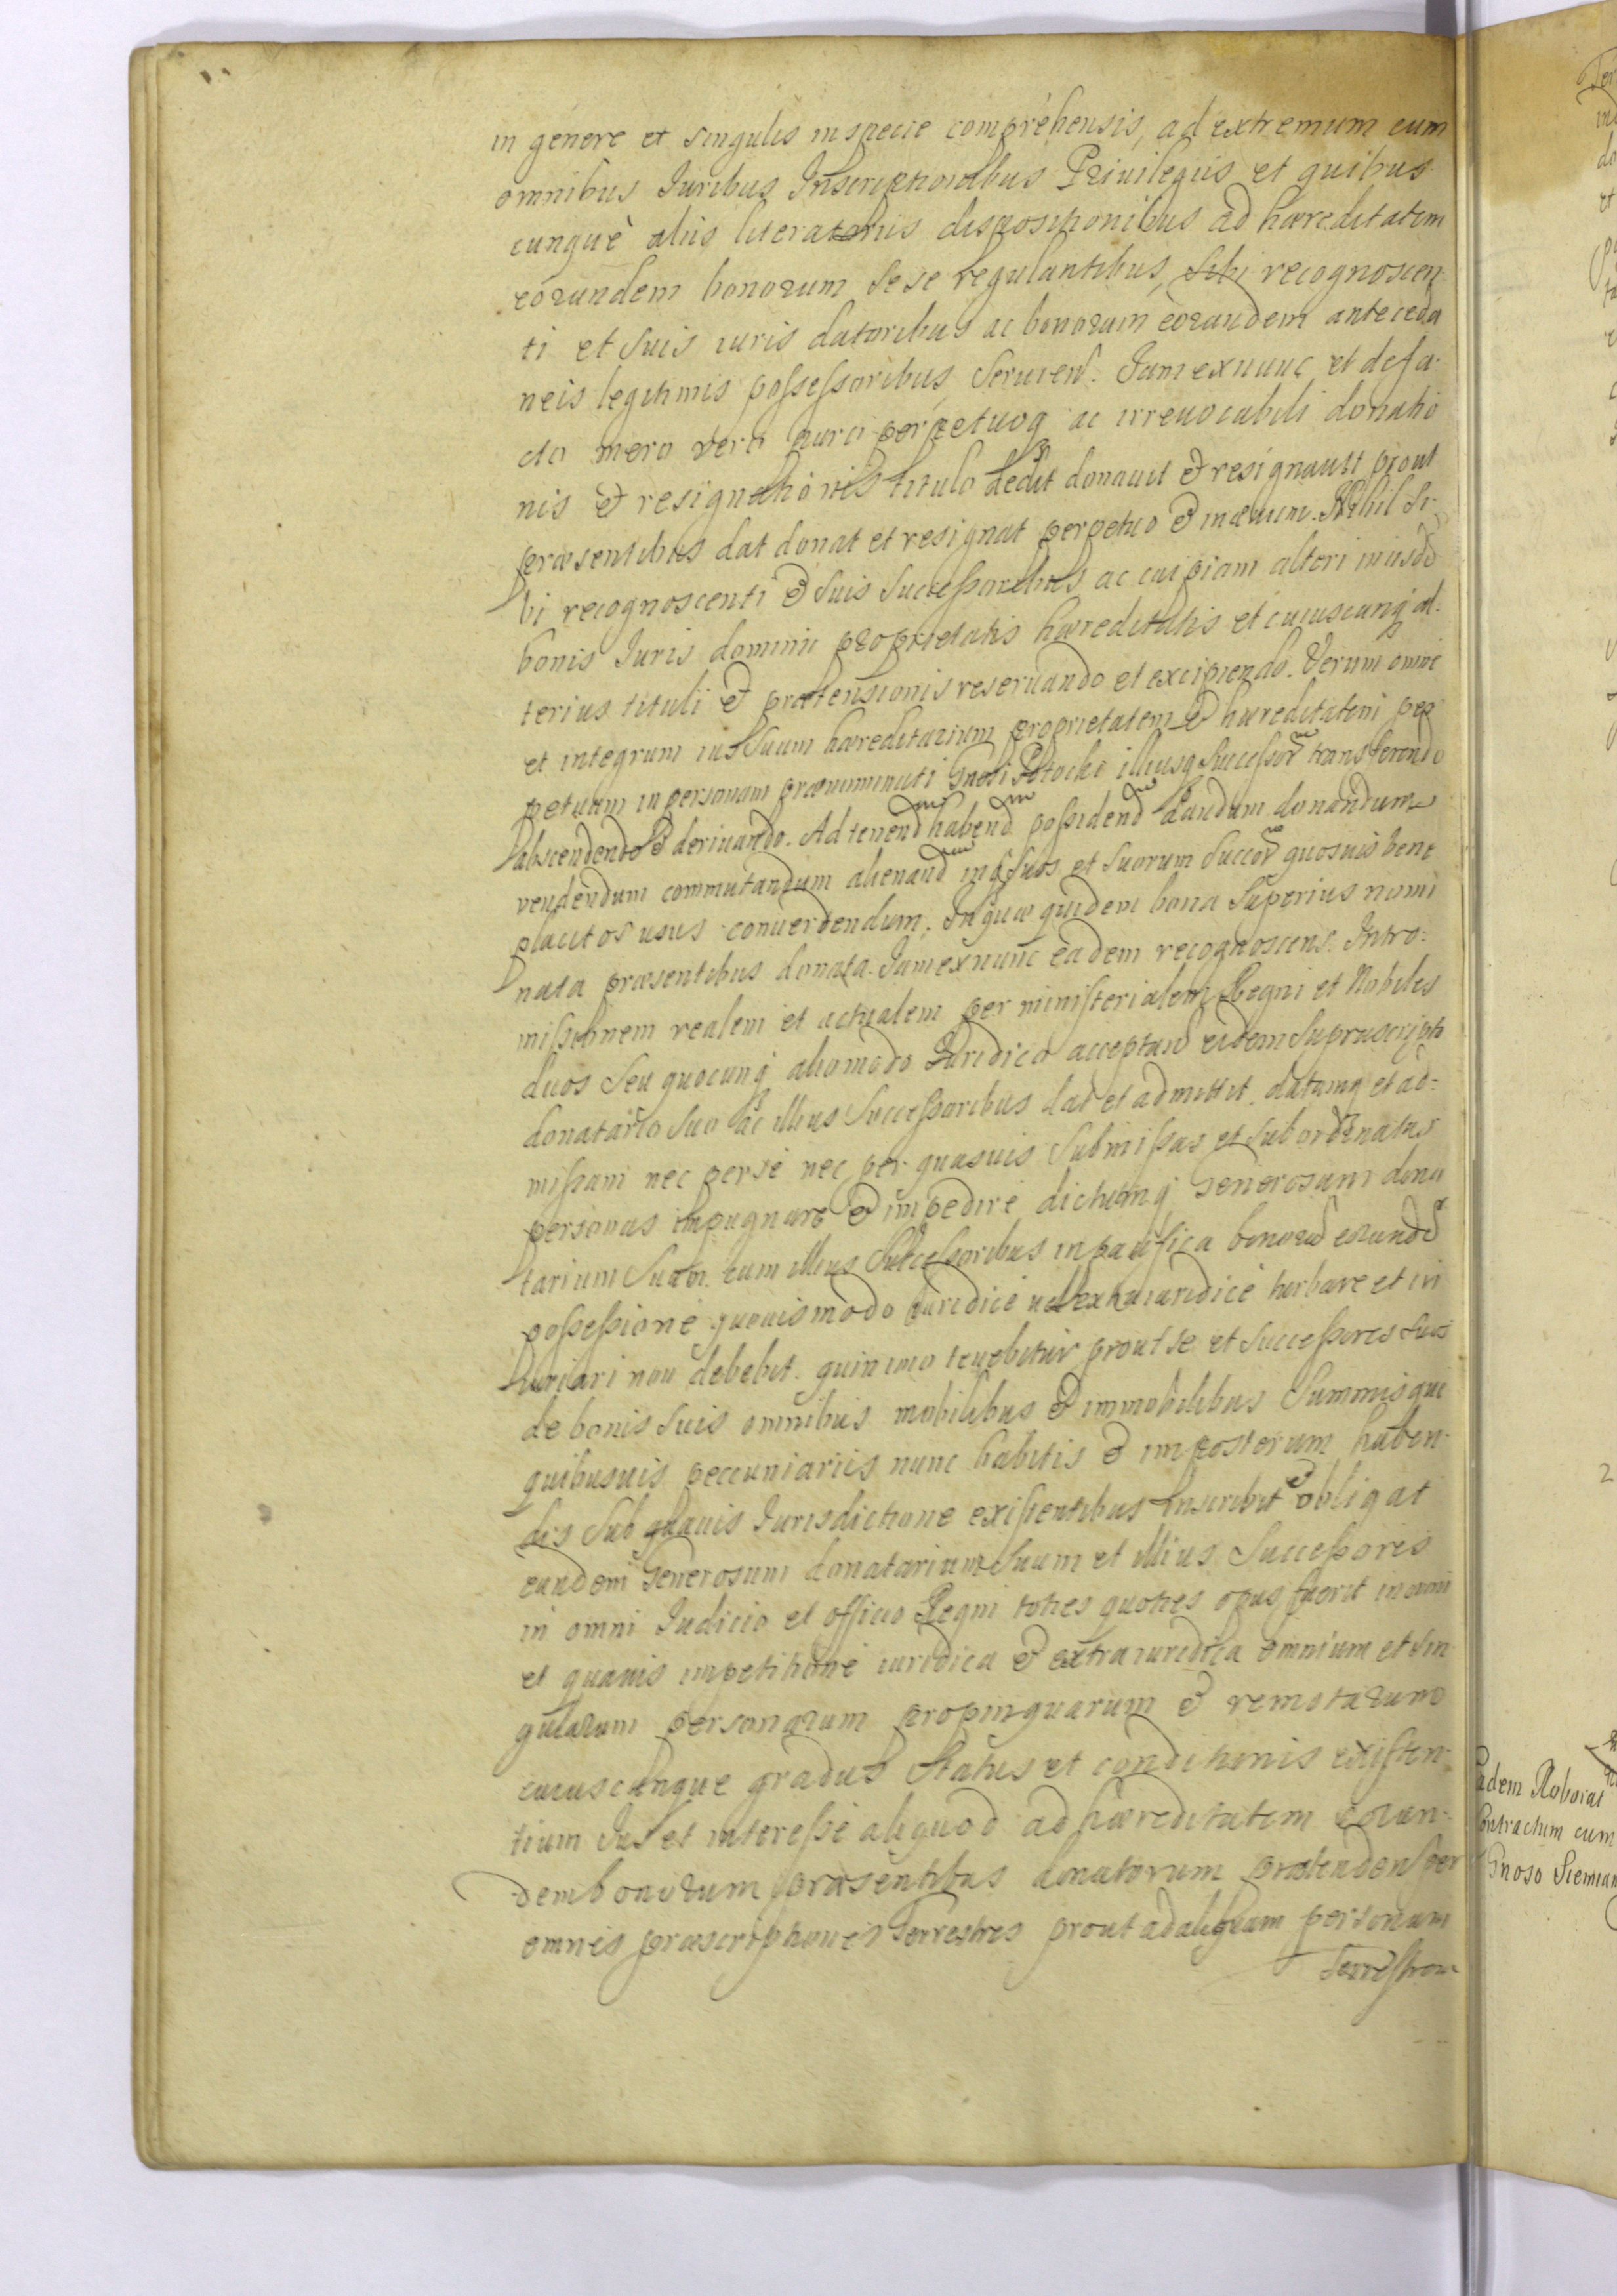 in genere et singulis in specie comprehensis, ad extremum cum
omnibus Iuribus Inscriptionibus Priuilegiis et quibus
cunque aliis literatoriis dispositionibus ad hæreditatem
eorundem bonorum sese regulantibus, sibi recognoscen
ti et suis iuris datoribus ac bonorum eorundem anteceda
neis legitimis possessoribus seruien. Iam exnunc et de fa-
cto mero vero puro perpetuoq ac irreuocabili donatio
nis & resignationis titulo dedit donauit & resignauit prout
præsentibus dat donat et resignat perpetuo & in æuum. Nihil si-
bi recognoscenti & suis Successoribus ac cuipiam alteri in iisdẽ
bonis Iuris dominii proprietatis hæreditatis et cuiuscunq al-
terius tituli & prætensionis reseruando et excipiendo. Verum omne
et integrum ius suum hæreditarium proprietatem & hæreditatem per
petuam in personam prænominati Gnosi Potocki illiusq Successorũ transferendo
abscendendo & deriuando. Ad tenendum habendum possidendum dandum donandum
vendendum commutandum alienandum inq suos et suorum Succorum quosuis bene
placitos usus conuertendum. In quæ quidem bona superius nomi
nata præsentibus donata. Iam exnunc eadem recognoscens Intro:
missionem realem et actualem per ministerialem Regni et Nobiles
duos seu quocunq alio modo Iuridico acceptan eidem suprascripto
donatario suo ac illius Successoribus dat et admittit. datamq et ad=
missam nec per se nec per quasuis submissas et subordinatas
personas impugnare & impedire dictumq Generosum dona
tarium suum cum illius Successoribus in pacifica bonorũ eorundẽ
possessione quouismodo iuridice uel extraiuridice turbare et in
iuriari non debebit. quin imo tenebitur prout se et successores suos
de bonis suis omnibus mobilibus & immobilibus Summisque
quibusuis peccuniariis nunc habitis & imposterum haben-
dis sub quauis Iurisdictione existentibus inscribit & obligat
eundem Generosum donatarium suum et illius Successores
in omni Iudicio et officio Regni toties quoties opus fuerit in omni
et quauis impetitione iuridica & extraiuridica omnium et sin
gularum personarum propinquarum & remotarum
cuiuscunque gradus status et conditionis existen-
tium Ius et interesse aliquod ad hæreditatem eorun-
dem bonorum præsentibus donatorum prætenden per
omnes præscriptiones Terrestres prout ad aliquam personam
Terrestrem
Eadem Roborat
Contractum cum
Gnoso Siemian